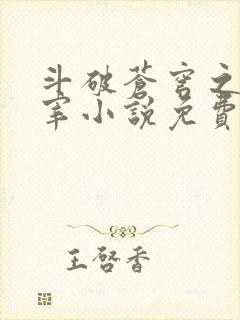 斗破蒼穹之
宰小說免費
王啓香